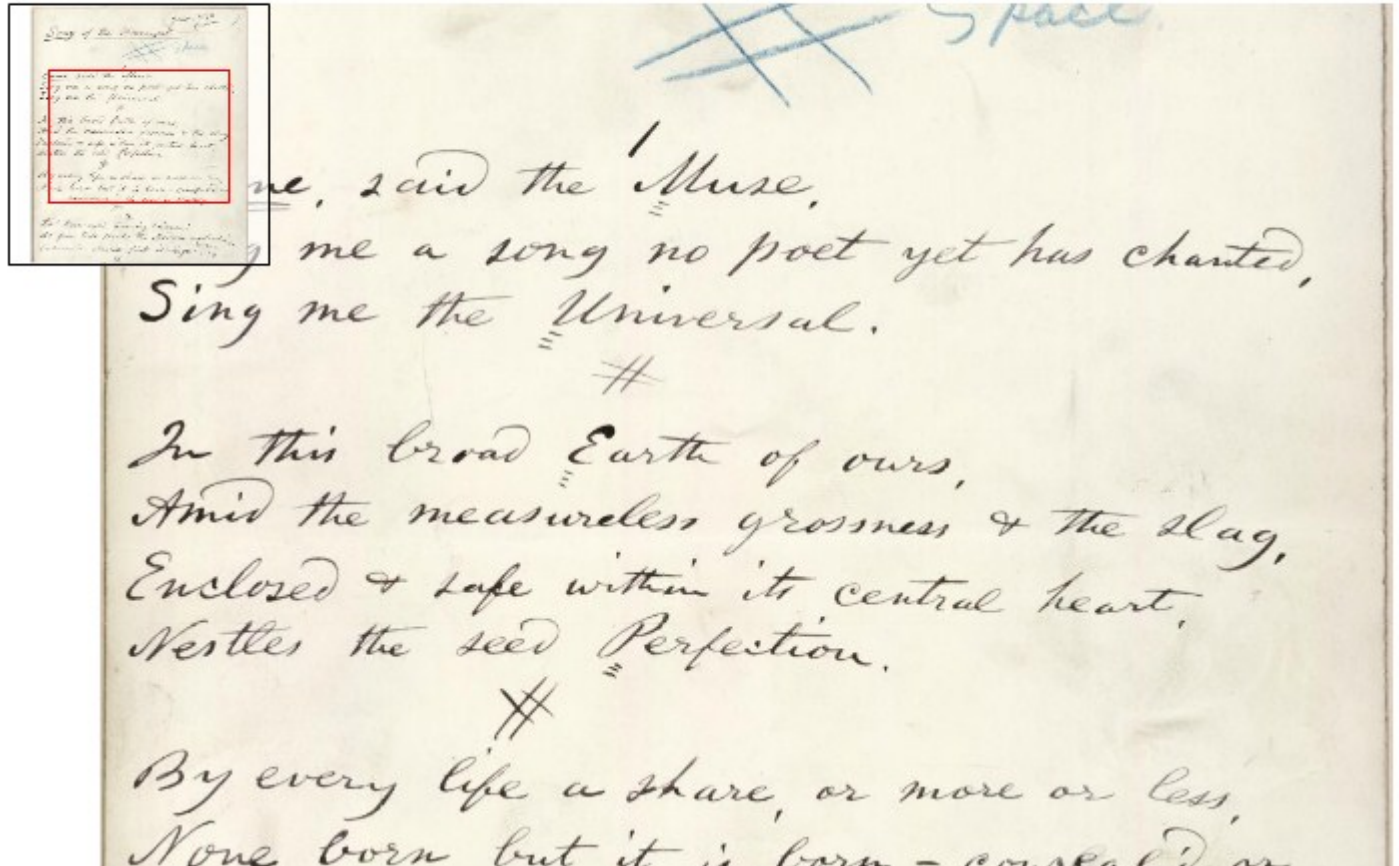 Space
1
ne, said the Muse,
g me a song no poet yet has chanted,
Sing me the Universal.
#
In this broad Earth of ours,
Amid the measureless grossness & the slag,
Enclosed & safe within its central heart,
Nestles the seed Perfection.
#
By every life a share, or more or less,
None born but it is born – conceal'd or